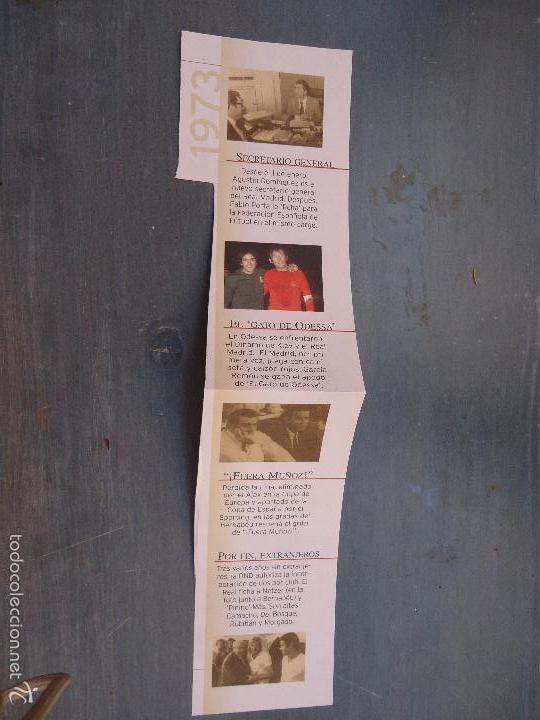 1973
SECRETARIO GENERAL
Desde el 1 de enero,
Agustín Domínguez es el
nuevo secretario general
del Real Madrid. Después,
Pablo Porta le 'ficha' para
la Federación Española de
Fútbol en el mismo cargo.
EL 'GATO DE ODESSA'
En Odessa se enfrentaron
el Dinamo de Kiev y el Real
Madrid. El Madrid, por pri-
mera vez, juega con cami-
seta y calzón rojos. García
Remón se gana el apodo
de 'El Gato de Odessa'.
"¡FUERA MUÑOZ!"
Perdida la Liga, eliminado
por el Ajax en la Copa de
Europa y apartado de la
Copa de España por el
Sporting, en las gradas del
Bernabéu resuena el grito
de "¡Fuera Muñoz!"
POR FIN, EXTRANJEROS
Tras varios años sin extranje-
ros, la DND autoriza la incor-
poración de dos por club. El
Real ficha a Netzer (en la
foto junto a Bernabéu) y
'Pinino' Más. Son altas
Camacho, Del Bosque,
Rubiñán y Morgado.
todocoleccion.net